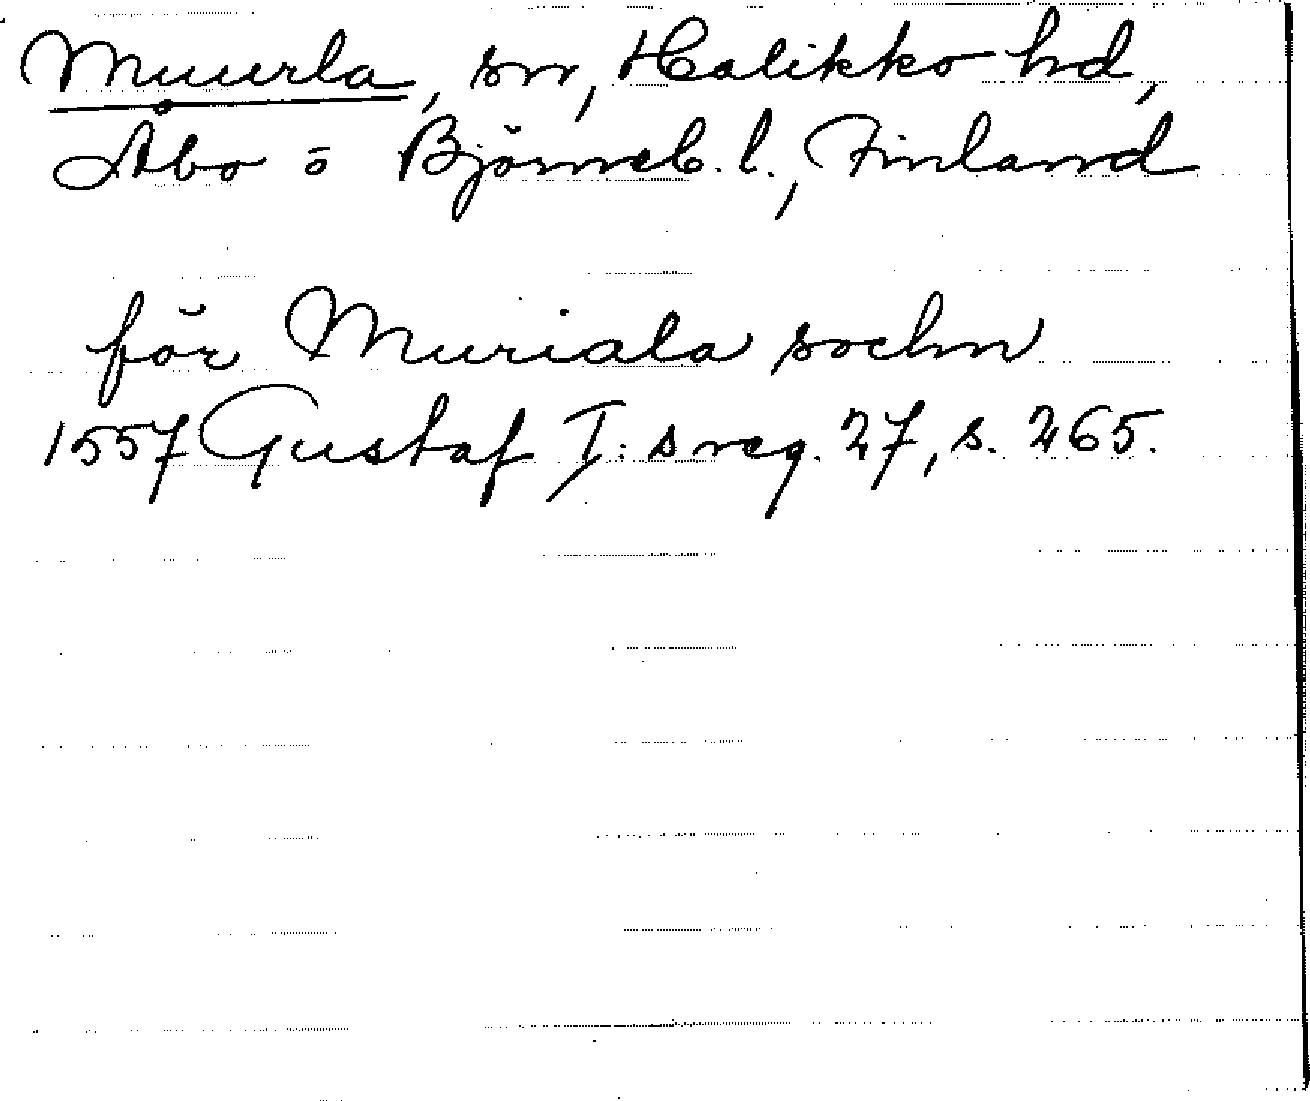 Muurla, sn, Halikko hd,
Åbo o Björneb. l., Finland
för Muriala sochn
1557 Gustaf I:s reg. 27, s. 265.